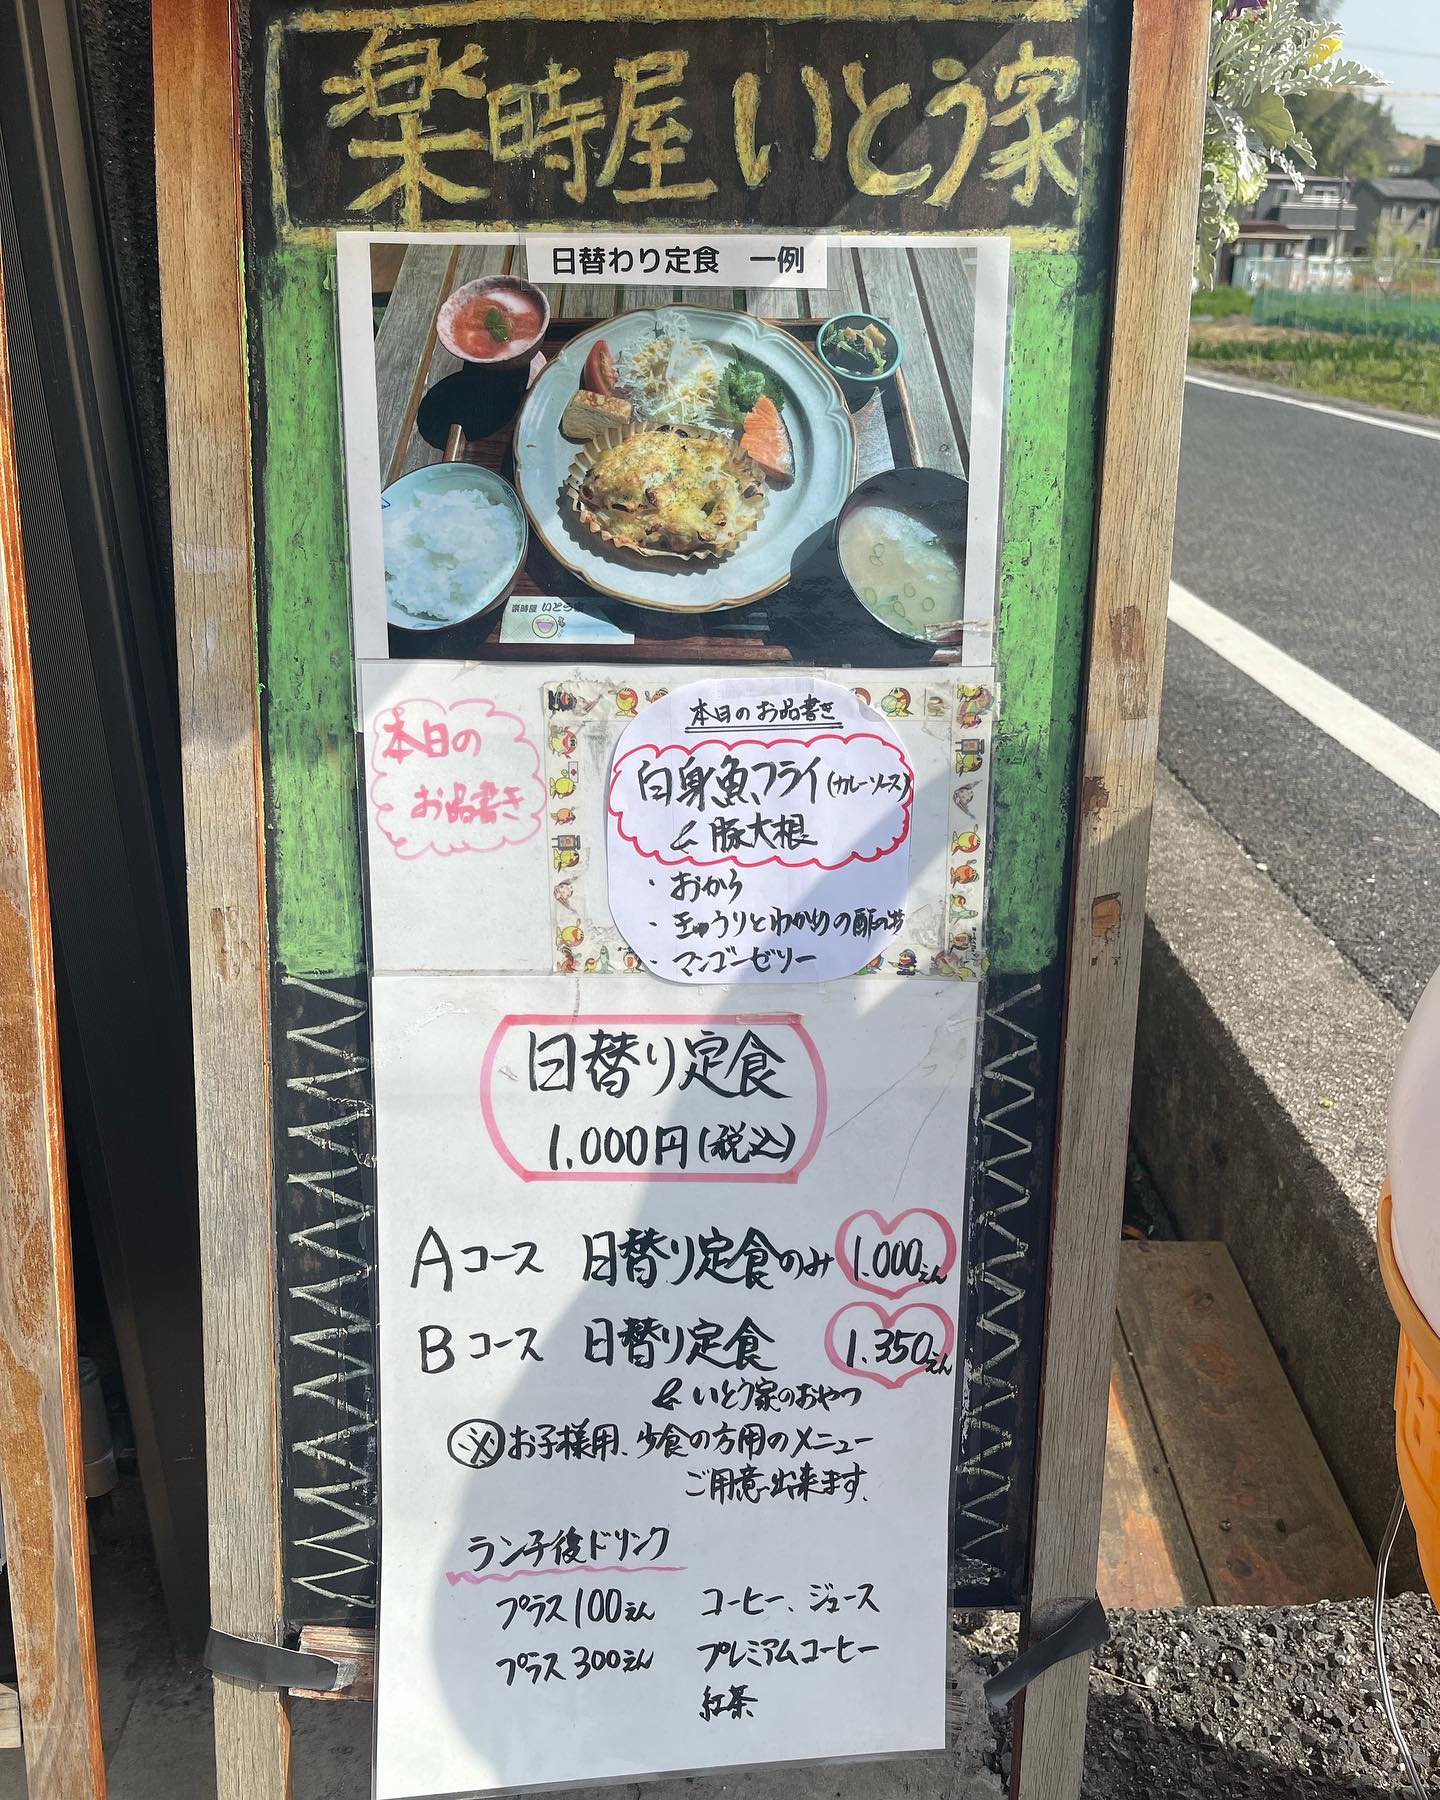 楽時屋 いとう家
日替わり定食　一例
楽時屋 いとう家
本日の
お品書き
本日のお品書き
白身魚フライ(カレーソース)
& 豚大根
・おから
・きゅうりとわかめの酢の物
・マンゴーゼリー
日替り定食
1.000円(税込)
Aコース 日替り定食のみ 1.000えん
Bコース 日替り定食 1.350えん
& いとう家のおやつ
※お子様用、少食の方用のメニュー
ご用意出来ます.
ランチ後ドリンク
プラス100えん コーヒー、ジュース
プラス300えん プレミアムコーヒー
紅茶